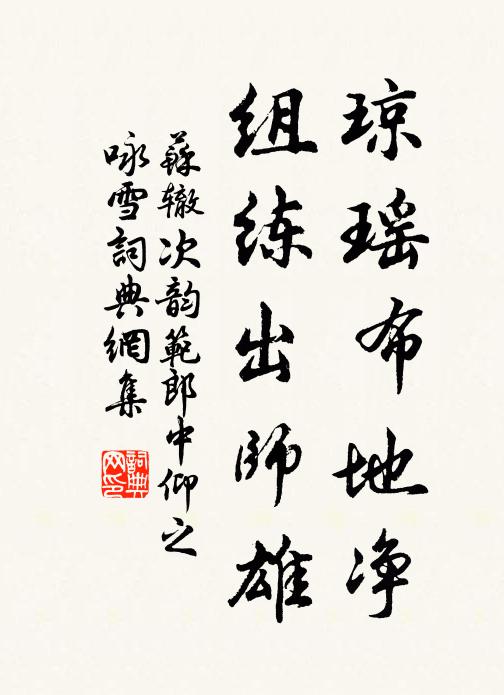 琼瑶布地净
组练出师雄
蘇辙次韵範郎中仰之
咏雪詞典網集
詞典
网印